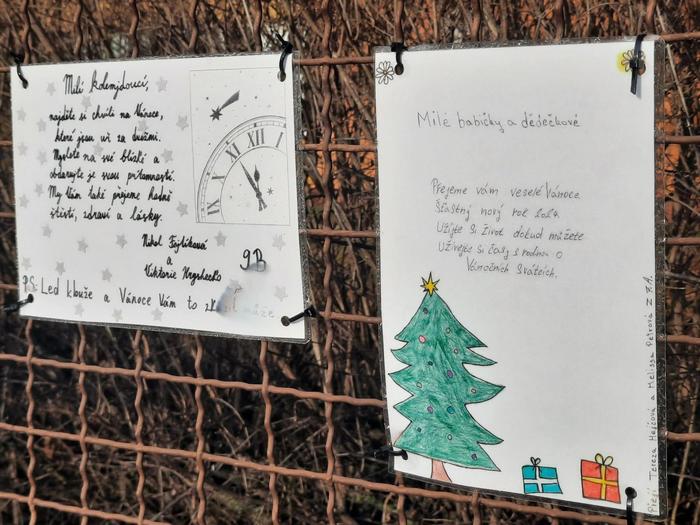 Milí kolemjdoucí,
najděte si chvíli na Vánoce,
které jsou už za dveřmi.
Myslete na své blízké a
obdarujte je svou přítomností.
My Vám také přejeme hodně
štěstí, zdraví a lásky.
Nikol Fejtlíková
a
Viktorie
9B
PS: Led klouže a Vánoce Vám to
IX X XI XII I
Milé babičky a dědečkové
Přejeme vám veselé Vánoce
Šťastný nový rok 2024.
Užijte si život dokud můžete
Užívejte si časy s rodinou o
Vánočních svátcích.
Přejí Tereza Hejcová a Melissa Petrová Z